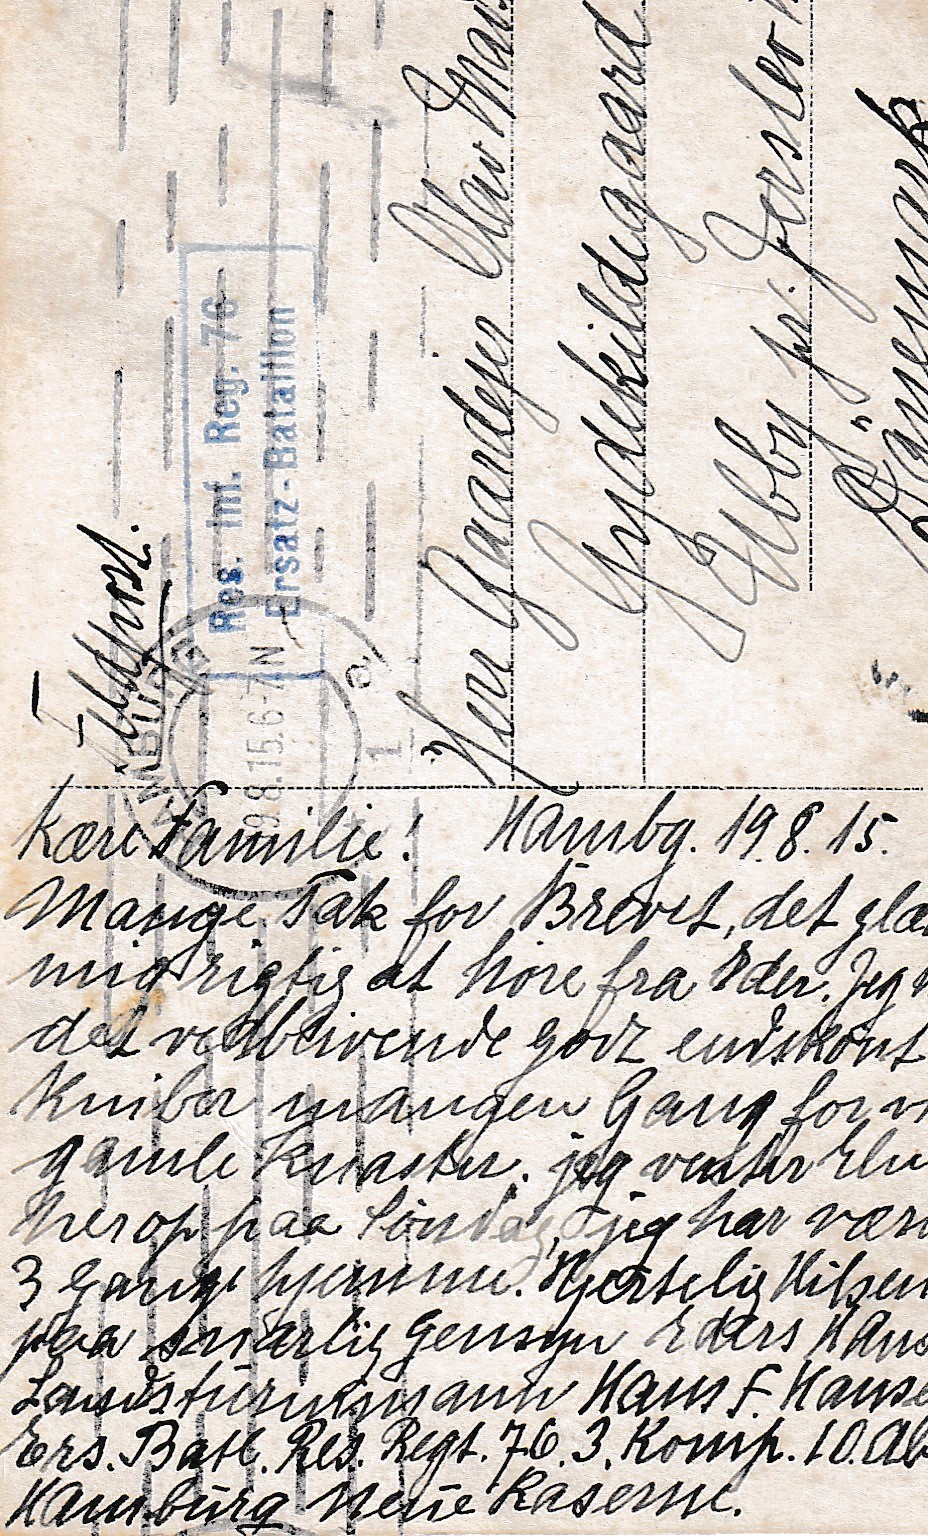 Feldpost.
Res. Inf. Reg. 76
Ersatz-Bataillon
HAMBURG
19.8.15.6-7N
1
Herr Gaardejer Olav
Gydekildegaard
Ulbby pr. Jerslev
Dänemark
Kære Familie! Hambg. 19.8.15.
Mange Tak for Brevet, det glæ
mig rigtig at høre fra Eder. Jeg
det vedblivende godt endskønt
kniber mangen Gang for
gamle Knaster. jeg venter
herop paa Søndag, jeg har være
3 Gange hjemme. Hjertelig Hilsen
paa snarlig Gensyn Eders Hans
Landsturmmann Hans F. Hanse
Ers. Batl. Res. Regt. 76. 3. Komp. 10. Ab
Hamburg Neue Kaserne.